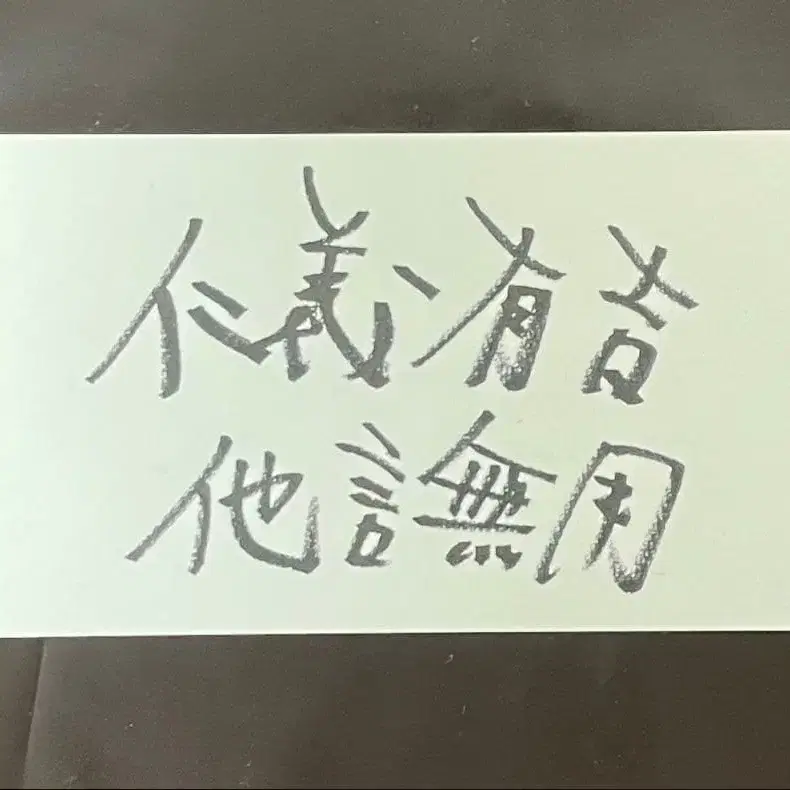 仁義有吉
他言無用